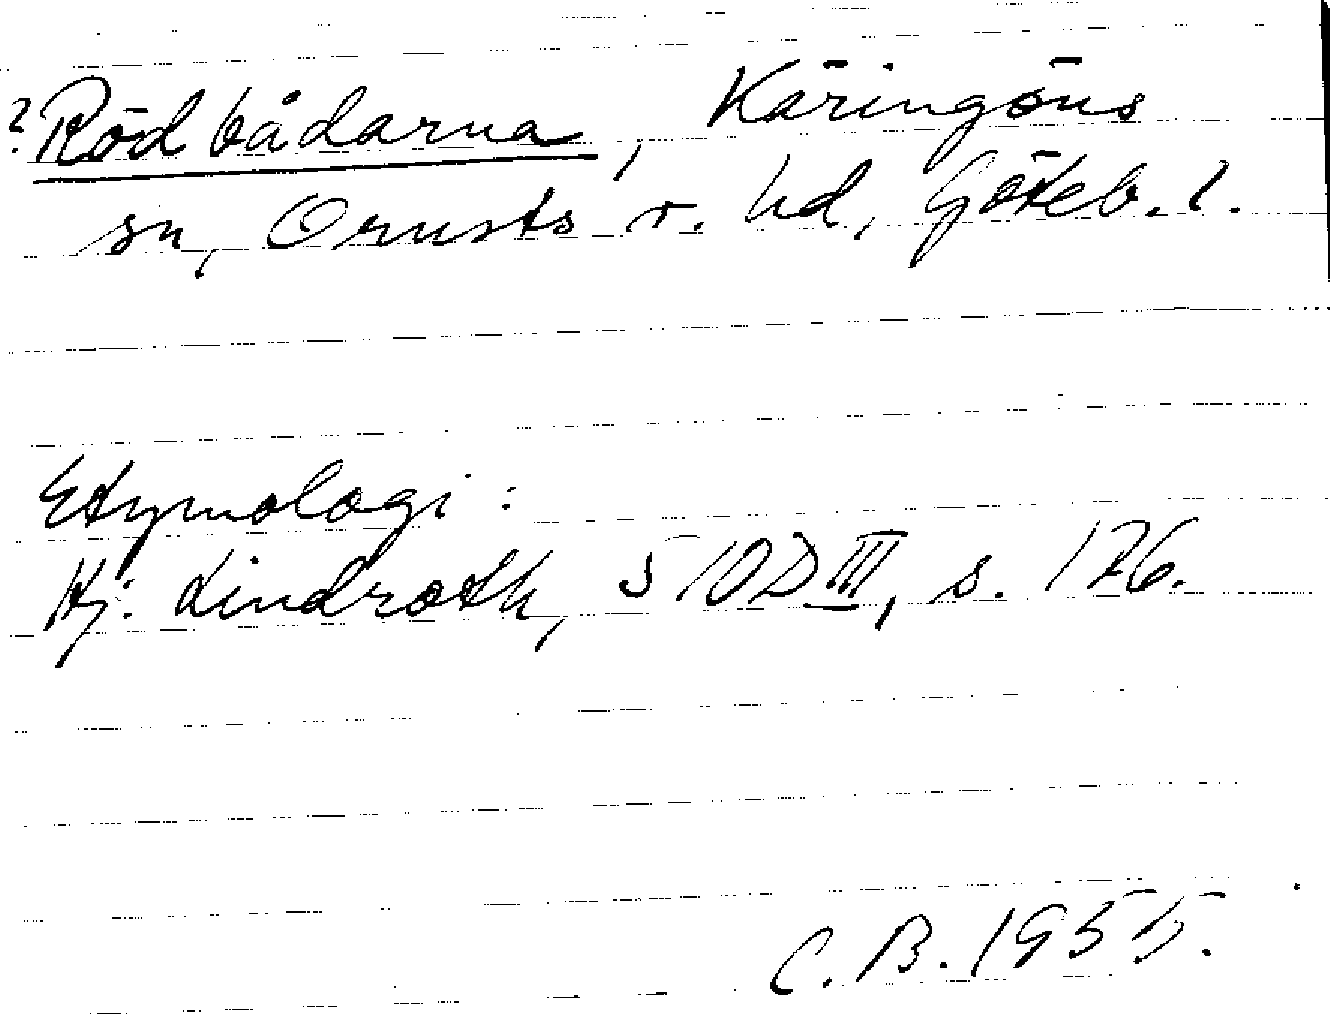 ? Rödbådarna, Käringöns
sn, Orusts v. hd, Göteb. l.
Etymologi:
Hj. Lindroth, SIOD III, s. 126.
C. B. 1955.